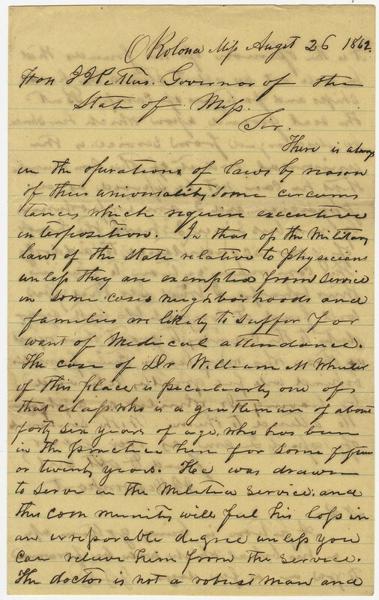 Okolona Miss Augst 26 1862.
Hon J J Pettus. Governor of the
State of Miss.
Sir.
There is always
in the operations of laws by reason
of their universality some circums
tances which require executive
interposition. In that of the Military
laws of the state relative to Physicians
unless they are exempted from service
in some cases neighborhoods and
families are likely to suffer for
want of Medical attendance.
The case of Dr William M
of this place is peculiarly one of
that class who is a gentleman of about
forty six years of age, who has been
in the practice here for some fifteen
or twenty years. He was drawn
to serve in the Militia service. and
this community will feel his loss in
an irreparable degree unless you
can relieve him from the service.
The doctor is not a robust man and